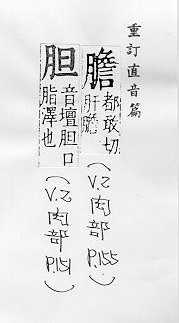 重訂直音篇
膽 都敢切
肝膽
(V.2 肉部 P.155)
胆 音壇胆口
脂澤也
(V.2 肉部 P.151)